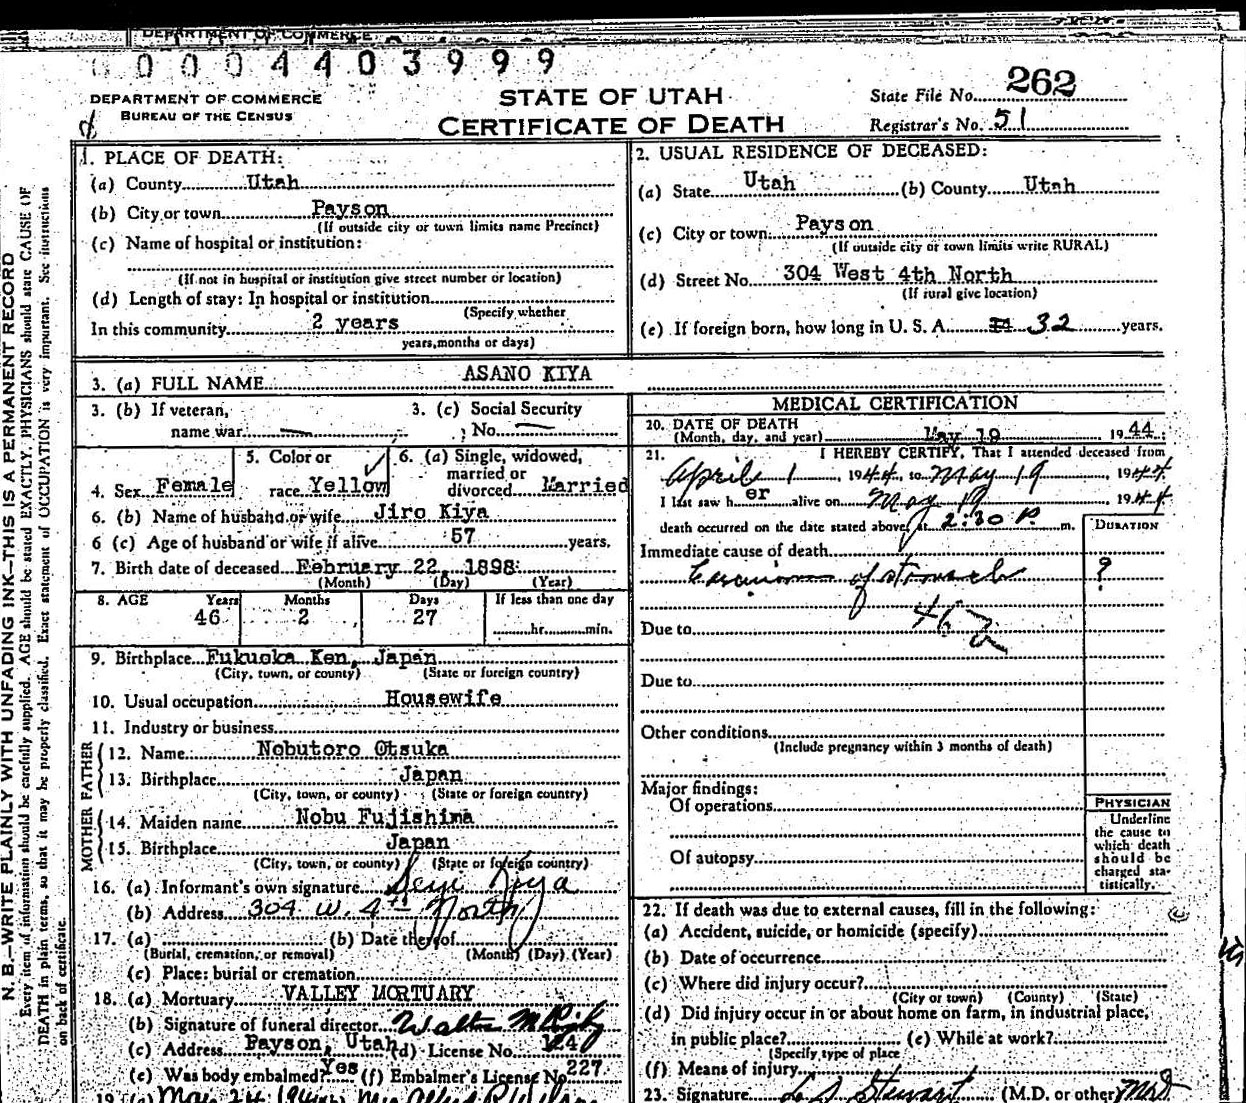 DEPARTMENT OF COMMERCE
0 0 0 4 4 0 3 9 9 9
DEPARTMENT OF COMMERCE
BUREAU OF THE CENSUS
STATE OF UTAH
CERTIFICATE OF DEATH
State File No. 262
Registrar's No. 51
N. B.—WRITE PLAINLY WITH UNFADING INK—THIS IS A PERMANENT RECORD
Every item of information should be carefully supplied. AGE should be stated EXACTLY. PHYSICIANS should state CAUSE OF
DEATH in plain terms, so that it may be properly classified. Exact statement of OCCUPATION is very important. See instructions
on back of certificate.
1. PLACE OF DEATH:
(a) County Utah
(b) City or town Payson
(If outside city or town limits name Precinct)
(c) Name of hospital or institution:
(If not in hospital or institution give street number or location)
(d) Length of stay: In hospital or institution
(Specify whether
In this community 2 years
years, months or days)
2. USUAL RESIDENCE OF DECEASED:
(a) State Utah (b) County Utah
(c) City or town Payson
(If outside city or town limits write RURAL)
(d) Street No. 304 West 4th North
(If rural give location)
(e) If foreign born, how long in U. S. A. 32 years.
3. (a) FULL NAME ASANO KIYA
3. (b) If veteran, 3. (c) Social Security
name war — No. —
4. Sex Female
5. Color or
race Yellow
6. (a) Single, widowed,
married or
divorced Married
6. (b) Name of husband or wife Jiro Kiya
6 (c) Age of husband or wife if alive 57 years.
7. Birth date of deceased February 22, 1898
(Month) (Day) (Year)
8. AGE Years Months Days If less than one day
46 2 27 hr. min.
9. Birthplace Fukuoka Ken, Japan
(City, town, or county) (State or foreign country)
10. Usual occupation Housewife
11. Industry or business
FATHER
12. Name Nobutoro Otsuka
13. Birthplace Japan
(City, town, or county) (State or foreign country)
MOTHER
14. Maiden name Nobu Fujishima
15. Birthplace Japan
(City, town, or county) (State or foreign country)
16. (a) Informant's own signature Kiya
(b) Address 304 W. 4th North
17. (a) (b) Date thereof
(Burial, cremation, or removal) (Month) (Day) (Year)
(c) Place: burial or cremation
18. (a) Mortuary VALLEY MORTUARY
(b) Signature of funeral director Walter M Rigby
(c) Address Payson, Utah (d) License No.
(e) Was body embalmed? Yes (f) Embalmer's License No. 227
19. (a) May 24 1944
MEDICAL CERTIFICATION
20. DATE OF DEATH
(Month, day, and year) May 19 1944
21. I HEREBY CERTIFY, That I attended deceased from
April 1, 1944, to May 19 1944
I last saw her alive on May 19 1944
death occurred on the date stated above, at 2:30 P. m.
DURATION
Immediate cause of death
Carcinoma of stomach ?
46 b
Due to
Due to
Other conditions
(Include pregnancy within 3 months of death)
Major findings:
Of operations
Of autopsy
PHYSICIAN
Underline
the cause to
which death
should be
charged sta-
tistically.
22. If death was due to external causes, fill in the following:
(a) Accident, suicide, or homicide (specify)
(b) Date of occurrence
(c) Where did injury occur?
(City or town) (County) (State)
(d) Did injury occur in or about home on farm, in industrial place,
in public place? (e) While at work?
(Specify type of place
(f) Means of injury
23. Signature L D Stewart (M.D. or other) M.D